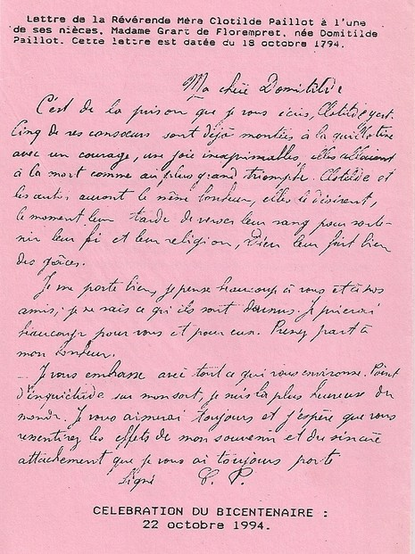 Lettre de la Révérende Mère Clotilde Paillot à l'une
de ses nièces, Madame Grart de Florempret, née Domitilde
Paillot. Cette lettre est datée du 18 octobre 1794.
Ma chère Domitilde
C'est de la prison que je vous écris, Clotilde y est.
Cinq de ses consœurs sont déjà montées à la guillotine
avec un courage, une joie inexprimables, elles allaient
à la mort comme au plus grand triomphe. Clotilde et
les autres auront le même bonheur, elles le désirent,
le moment leur tarde de verser leur sang pour soute-
nir leur foi et leur religion, Dieu leur fait bien
des grâces.
Je me porte bien, je pense beaucoup à vous et à nos
amis; je ne sais ce qu'ils sont devenus. Je prierai
beaucoup pour vous et pour eux. Prenez part à
mon bonheur.
Je vous embrasse avec tout ce qui vous environne. Point
d'inquiétude sur mon sort, je suis la plus heureuse du
monde. Je vous aimerai toujours et j'espère que vous
ressentirez les effets de mon souvenir et du sincère
attachement que je vous ai toujours porté
Signé C. P.
CELEBRATION DU BICENTENAIRE :
22 octobre 1994.